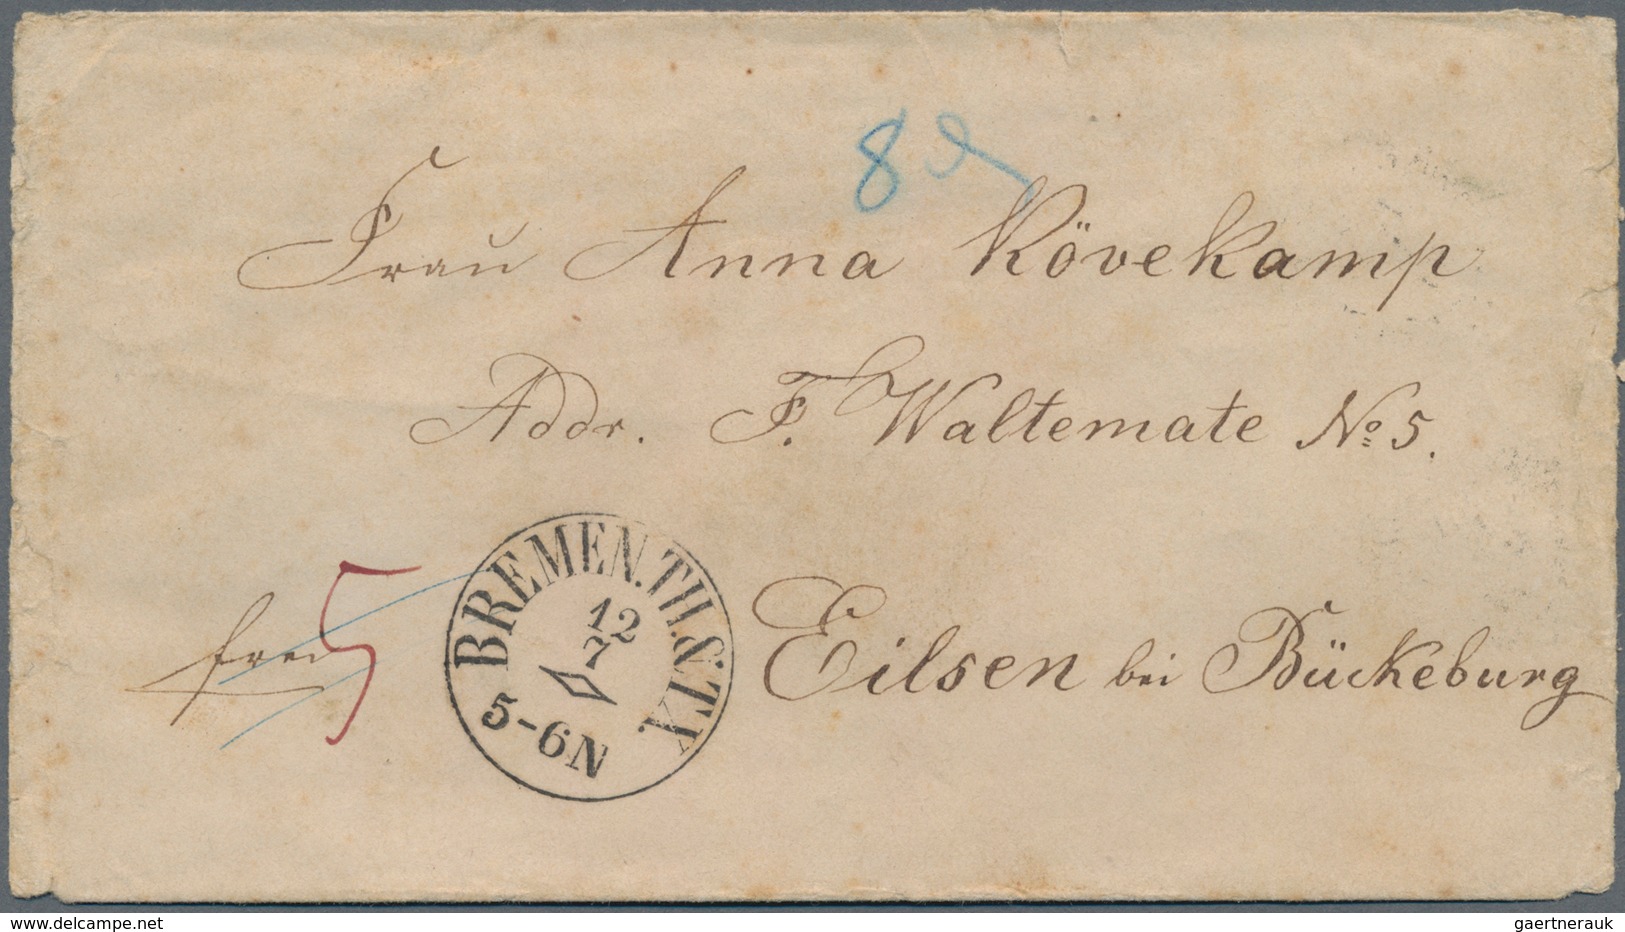 8
Frau Anna Kövekamp
Addr. F. Waltemate No 5.
frei 5
BREMEN. TH. & TX
12
7
5-6N
Eilsen bei Bückeburg
delcampe.net
gaertnerauk